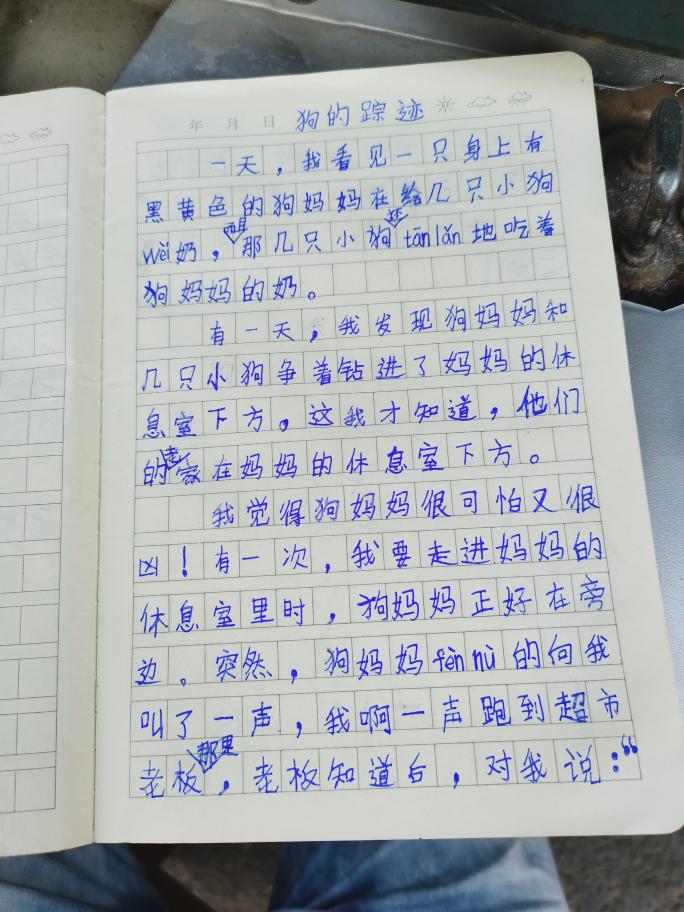 年 月 日 狗的踪迹
一天，我看见一只身上有
黑黄色的狗妈妈在给几只小狗
wèi奶，而且那几只小狗还tānlǎn地吃着
狗妈妈的奶。
有一天，我发现狗妈妈和
几只小狗争着钻进了妈妈的休
息室下方。这我才知道，他们
的老家在妈妈的休息室下方。
我觉得狗妈妈很可怕又很
凶！有一次，我要走进妈妈的
休息室里时，狗妈妈正好在旁
边。突然，狗妈妈fènnù的向我
叫了一声，我啊一声跑到超市
老板那里，老板知道后，对我说：“